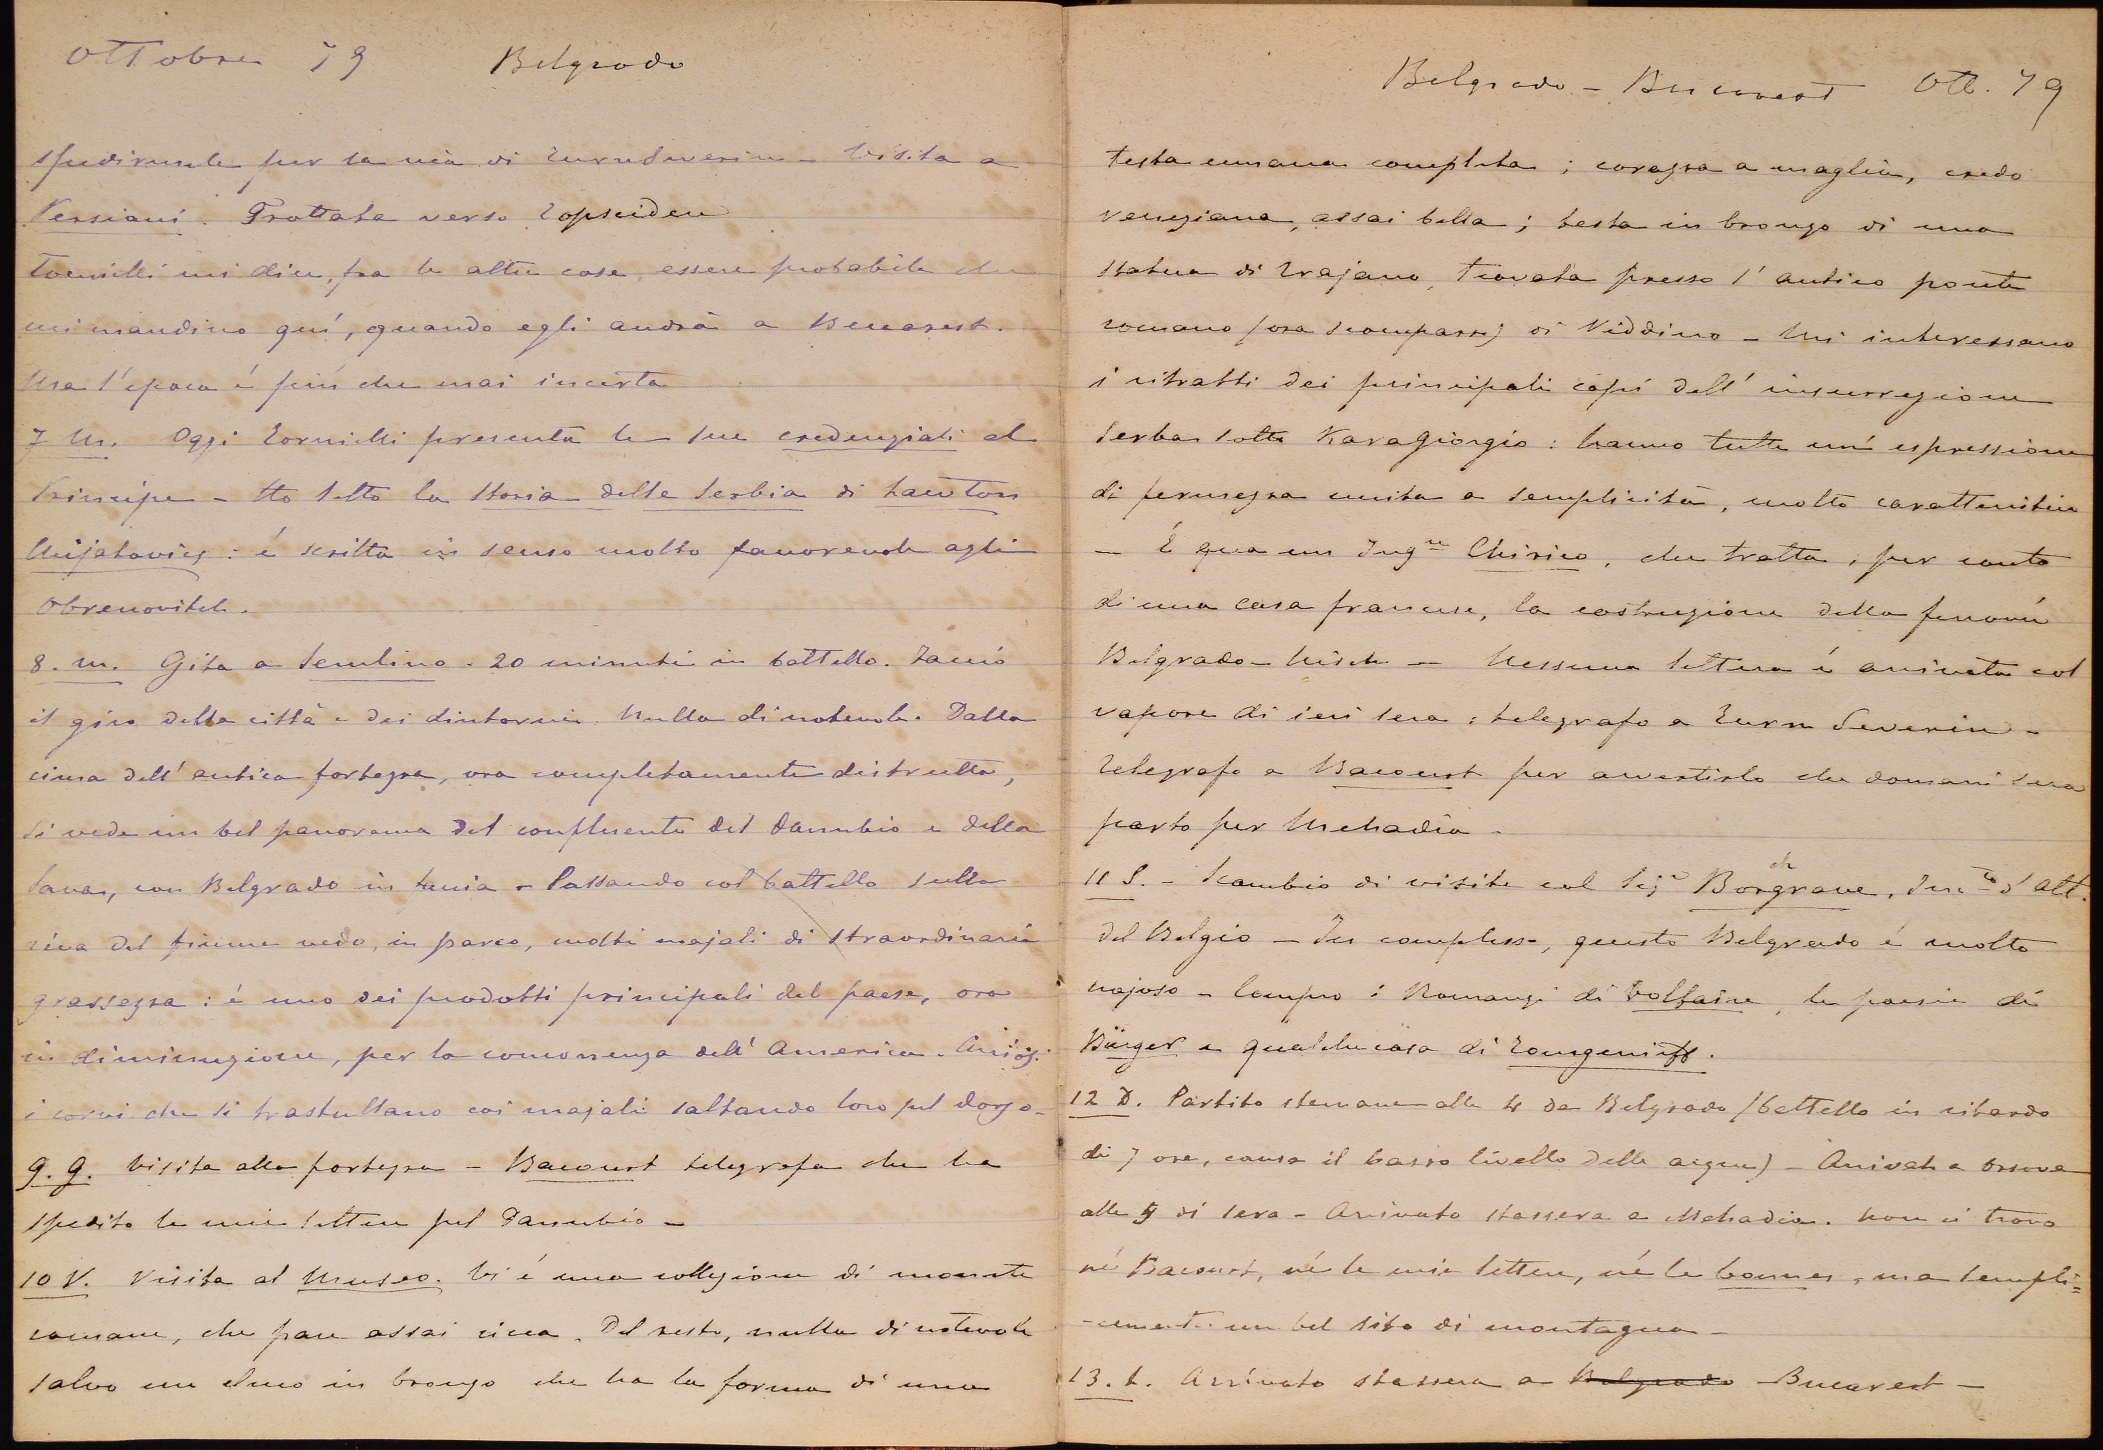 Ottobre 79 Belgrado
spedirmele per la via di Turnu Severin – Visita a
Persiani. Trottata verso Topscider
Tornielli mi dice, fra le altre cose, essere probabile che
mi mandino quí, quando egli andrà a Bucarest.
Ma l'epoca é piú che mai incerta
7 M. Oggi Tornielli presenta le sue credenziali al
Principe – Ho letto la Storia della Serbia di Lawton
Mijatovics : é scritta in senso molto favorevole agli
Obrenovitch.
8. m. Gita a Semlino. 20 minuti in battello. Faccio
il giro della città e dei dintorni. Nulla di notevole. Dalla
cima dell' antica fortezza, ora completamente distrutta,
si vede un bel panorama del confluente del Danubio e della
Sava, con Belgrado in faccia – Passando col battello sulla
riva del fiume vedo, in parco, molti majali di straordinaria
grassezza : é uno dei prodotti principali del paese, ora
in diminuzione, per la concorrenza dell' America.
i corvi che si trastullano coi majali saltando loro sul dorso –
9. G. Visita alla fortezza – Bacourt telegrafa che ha
spedito le mie lettere sul Danubio –
10 V. Visita al Museo. Vi é una collezione di monete
romane, che pare assai ricca. Del resto, nulla di notevole
salvo un elmo in bronzo che ha la forma di una
Belgrado – Bucarest Ott. 79
testa umana completa ; corazza a maglia, credo
veneziana, assai bella ; testa in bronzo di una
statua di Trajano, trovata presso l' antico ponte
romano (ora scomparso) di Viddino – Mi interessano
i ritratti dei principali capi dell' insurrezione
serba sotto KaraGiorgio : hanno tutti un' espressione
di fermezza unita a semplicità, molto caratteristica
– É qua un Ing.re Chirico, che tratta, per conto
di una casa francese, la costruzione della ferrovia
Belgrado – Nisch – Nessuna lettera é arrivata col
vapore di ieri sera : telegrafo a Turn Severin –
Telegrafo a Bacourt per avvertirlo che domani sera
parto per Mehadia –
11 S. – Scambio di visite col Sigr Borchgrave, Inc.to d'Aff.
del Belgio – In complesso, questo Belgrado é molto
nojoso – Compro i Romanzi di Voltaire, le poesie di
Bürger e qualche cosa di Tourgenieff.
12 D. Partito stamane alle 4 da Belgrado (battello in ritardo
di 7 ore, causa il basso livello delle acque) – Arrivato a Orsova
alle 5 di sera – Arrivato stassera a Mehadia. Non ci trovo
né Bacourt, né le mie lettere, né le bonnes, ma sempli=
-cemente un bel sito di montagna –
13. L. Arrivato stassera a Belgrado Bucarest –